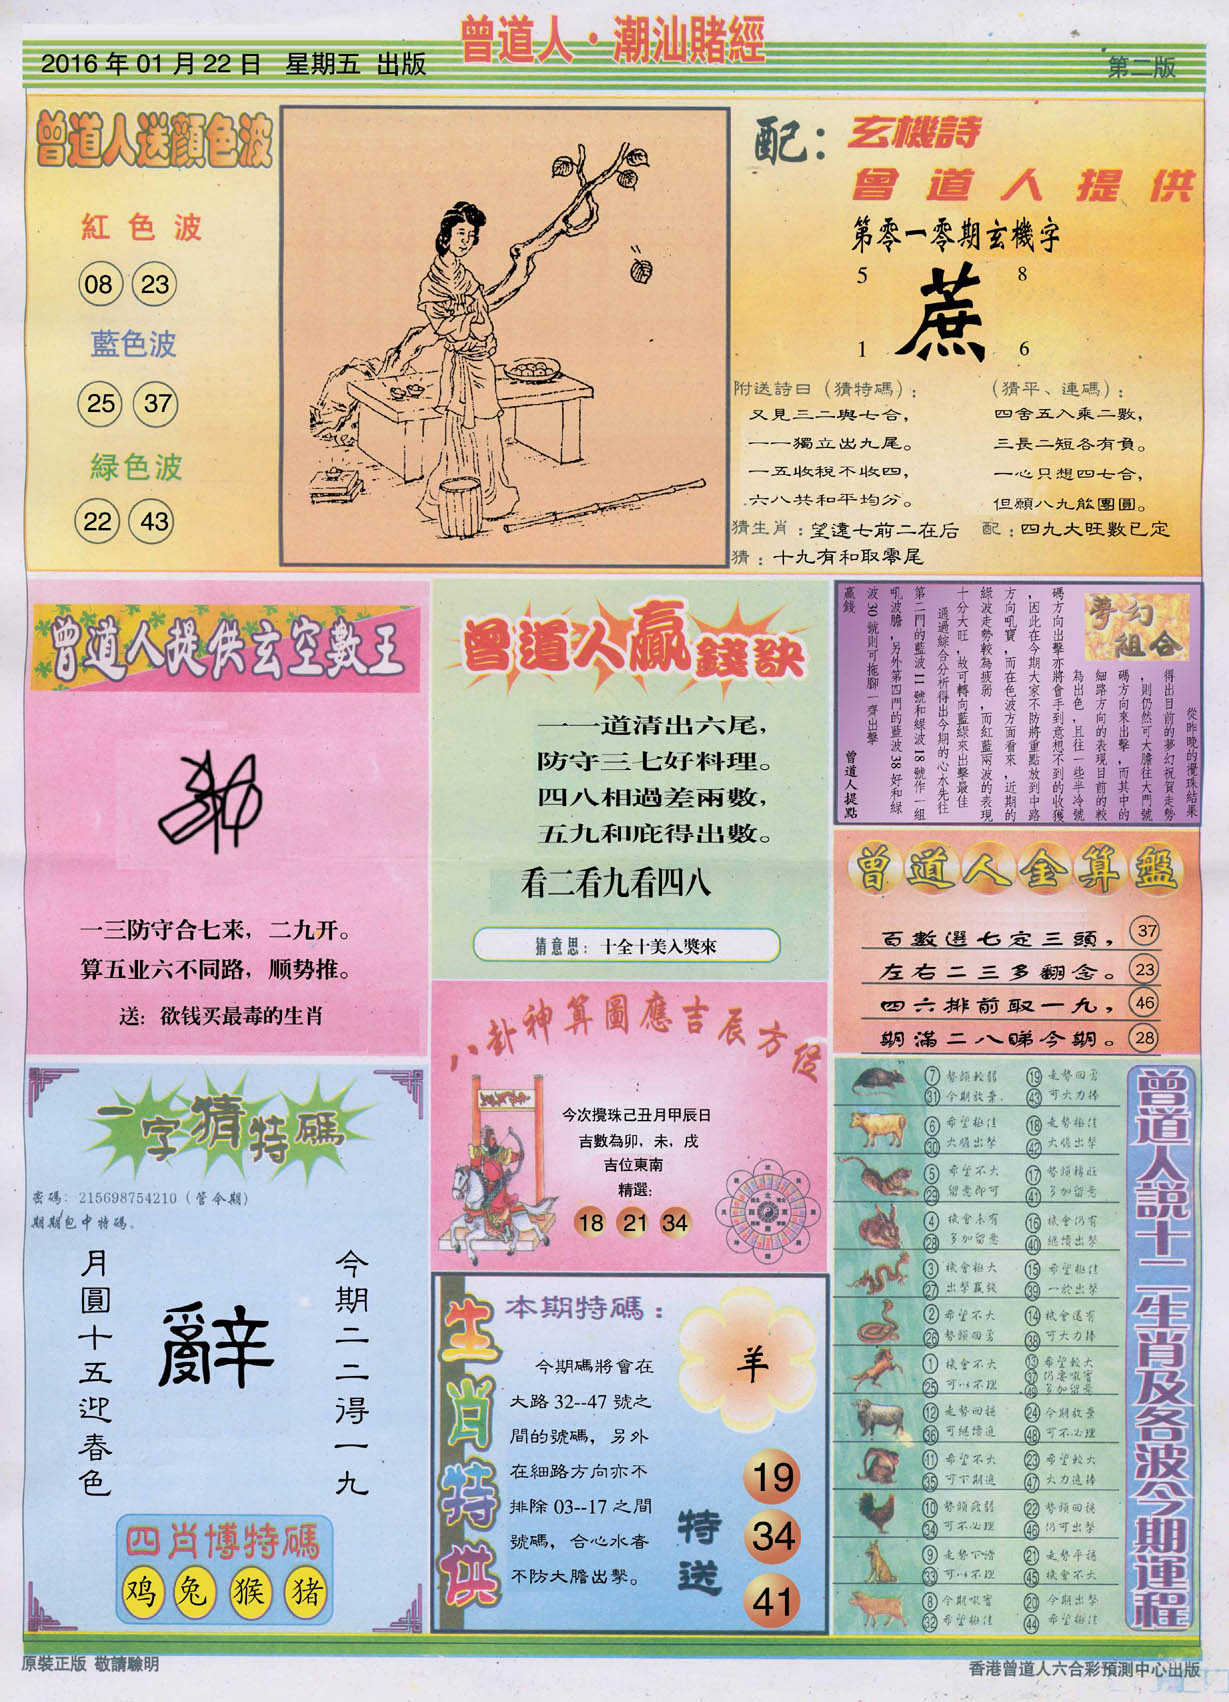 曾道人·潮汕賭經
2016 年 01 月 22 日 星期五 出版
第二版
曾道人送顏色波
紅色波
08 23
藍色波
25 37
緑色波
22 43
配：玄機詩
曾道人提供
第零一零期玄機字
5 8
蔗
1 6
附送詩曰（猜特碼）：
又見三二與七合，
一一獨立出九尾。
一五收稅不收四，
六八共和平均分。
（猜平、連碼）：
四舍五入乘二數，
三長二短各有負。
一心只想四七合，
但願八九能團圓。
猜生肖：望遠七前二在后
配：四九大旺數已定
猜：十九有和取零尾
曾道人提供玄空數王
一三防守合七来，二九开。
算五业六不同路，顺势推。
送：欲钱买最毒的生肖
曾道人贏錢訣
一一道清出六尾，
防守三七好料理。
四八相過差兩數，
五九和庇得出數。
看二看九看四八
猜意思：十全十美入獎來
夢幻組合
從昨晚的攪珠結果
得出目前的夢幻祝賀走勢
，則仍然可大膽往大門號
碼方向來出擊，而其中的
細路方向的表現目前的較
為出色，且往一些半冷號
碼方向出擊亦將會手到意想不到的收獲
，因此在今期大家不防將重點放到中路
方向吼寶，而在色波方面看來，近期的
綠波走勢較為疲弱，而紅藍兩波的表現
十分大旺，故可轉向藍綠來出擊最佳
通過綜合分析得出今期的心水先往
第二門的藍波 11 號和緑波 18 號作一組
吼波膽，另外第四門的藍波 38 好和緑
波 30 號則可拖腳一齊出擊
贏錢
曾道人提點
曾道人金算盤
百數選七定三頭， 37
左右二三多翻念。 23
四六排前取一九， 46
期滿二八睇今期。 28
一字猜特碼
密碼：215698754210（管今期）
期期包中特碼。
今期二二得一九
辭
月圓十五迎春色
四肖博特碼
鸡 兔 猴 猪
八卦神算圖應吉辰方位
今次攪珠己丑月甲辰日
吉數為卯，未，戌
吉位東南
精選：
18 21 34
生肖特供
本期特碼：
今期碼將會在
大路 32--47 號之
間的號碼，另外
在細路方向亦不
排除 03--17 之間
號碼，合心水者
不防大膽出擊。
羊
特送
19
34
41
曾道人説十二生肖及各波今期運程
7 勢頭較弱 19 走勢回勇
31 今期放棄. 43 可大力捧
6 希望極佳 18 走勢極佳
30 大膽出擊 42 大膽出擊
5 希望不大 17 勢頭轉旺
29 留意即可 41 多加留意
4 機會未有 16 機會仍有
28 多加留意 40 繼續出擊
3 機會極大 15 希望極佳
27 出擊贏錢 39 一於出擊
2 希望不大 14 機會還有
26 勢頭回勇 38 可大力捧
1 機會不大 13 希望較大
25 可以不理 37 仍要吼實
49 多加留意
12 走勢回穩 24 今期放棄
36 可繼續追 48 可不必理
11 希望不大 23 希望較大
35 可下期追 47 大力追捧
10 勢頭疲弱 22 勢頭回穩
34 可不必理 46 仍可出擊
9 走勢下滑 21 走勢平穩
33 可以不理 45 機會不大
8 今期吼實 20 今期出擊
32 希望極佳 44 希望極佳
原裝正版 敬請驗明
香港曾道人六合彩預測中心出版